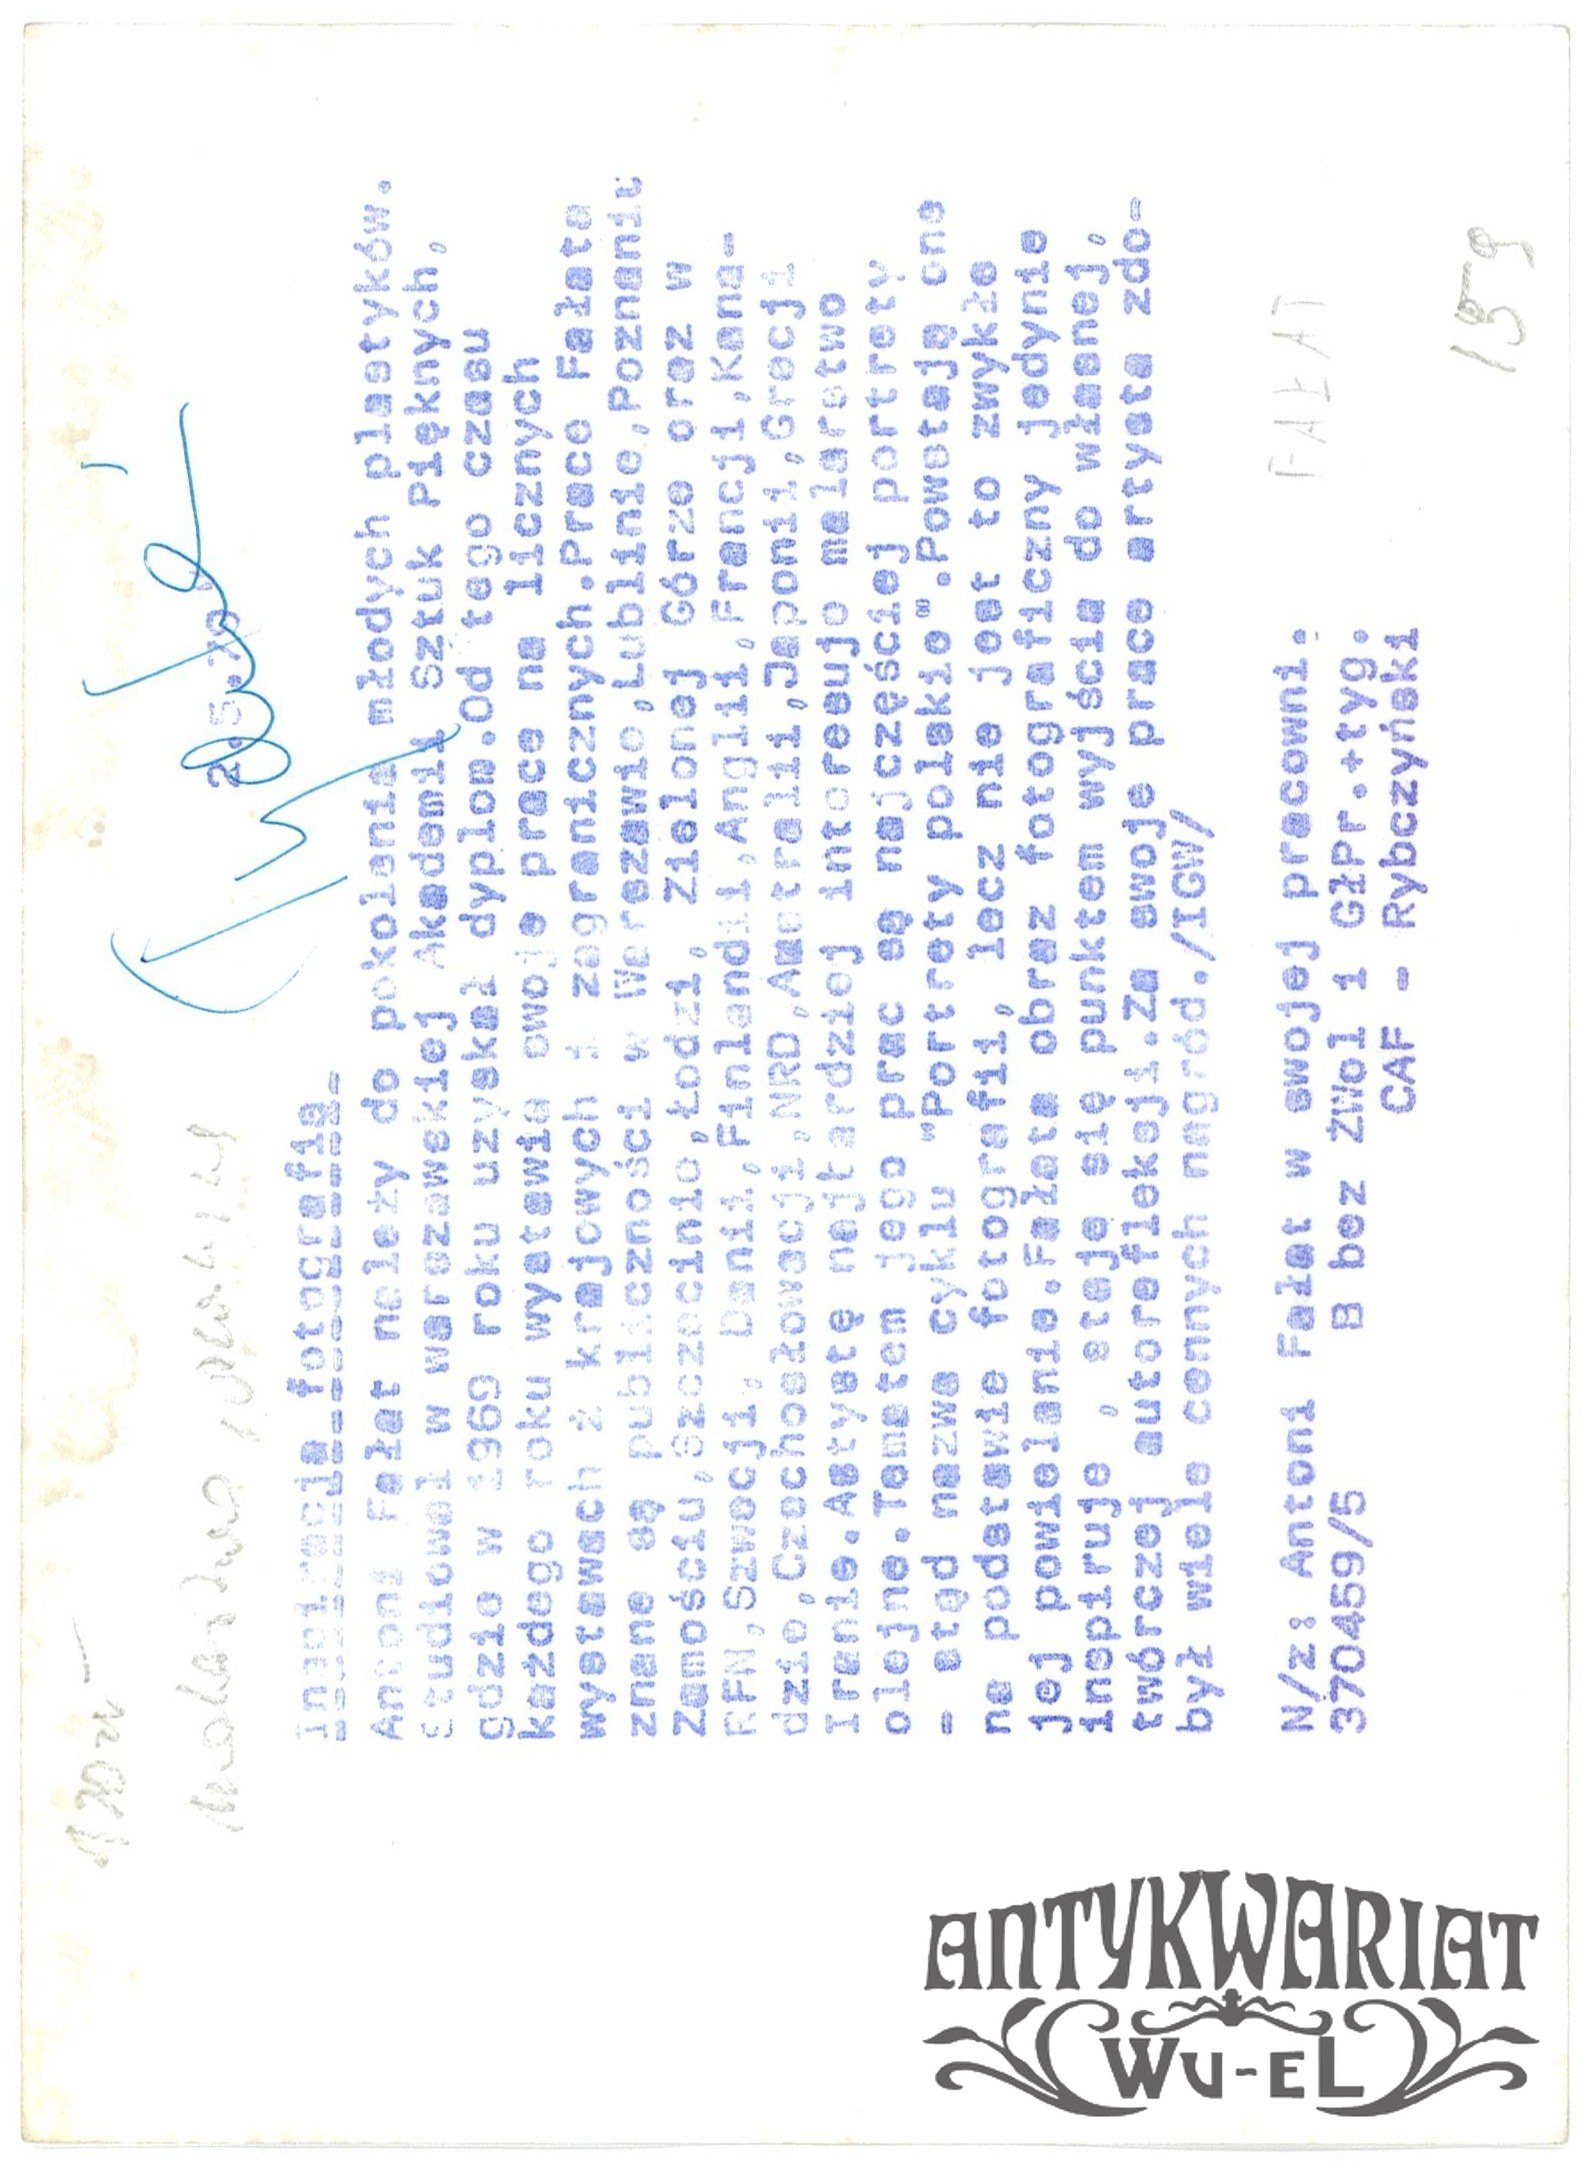 2.5.79
Inspiracja fotografią
Antoni Fałat należy do pokolenia młodych plastyków.
Studiował w warszawskiej Akademii Sztuk Pięknych,
gdzie w 1969 roku uzyskał dyplom.Od tego czasu
każdego roku wystawia swoje prace na licznych
wystawach z krajowych i zagranicznych.Prace Fałata
znane są publiczności w Warszawie,Lublinie,Poznaniu
Zamościu,Szczecinie,Łodzi, Zielonej Górze oraz w
RFN,Szwecji, Danii,Finlandii,Anglii,Francji,Kana-
dzie,Czechosłowacji,NRD,Australii,Japonii,Grecji
Iranie.Astystę najbardziej interesuje malarstwo
olejne.Tematem jego prac są najczęściej portrety
- stąd nazwa cyklu "Portrety polskie".Powstają one
na podstawie fotografii, lecz nie jest to zwykłe
jej powielanie.Fałata obraz fotograficzny jedynie
inspiruje , staje się punktem wyjścia do własnej,
twórczej autorefleksji.Za swoje prace artysta zdo-
był wiele cennych nagród./IGW/
N/z: Antoni Fałat w swojej pracowni.
370459/5 B bez ZWol i GłPr.+tyg.
CAF - Rybczyński
FAŁAT
159
ANTYKWARIAT
WU-EL